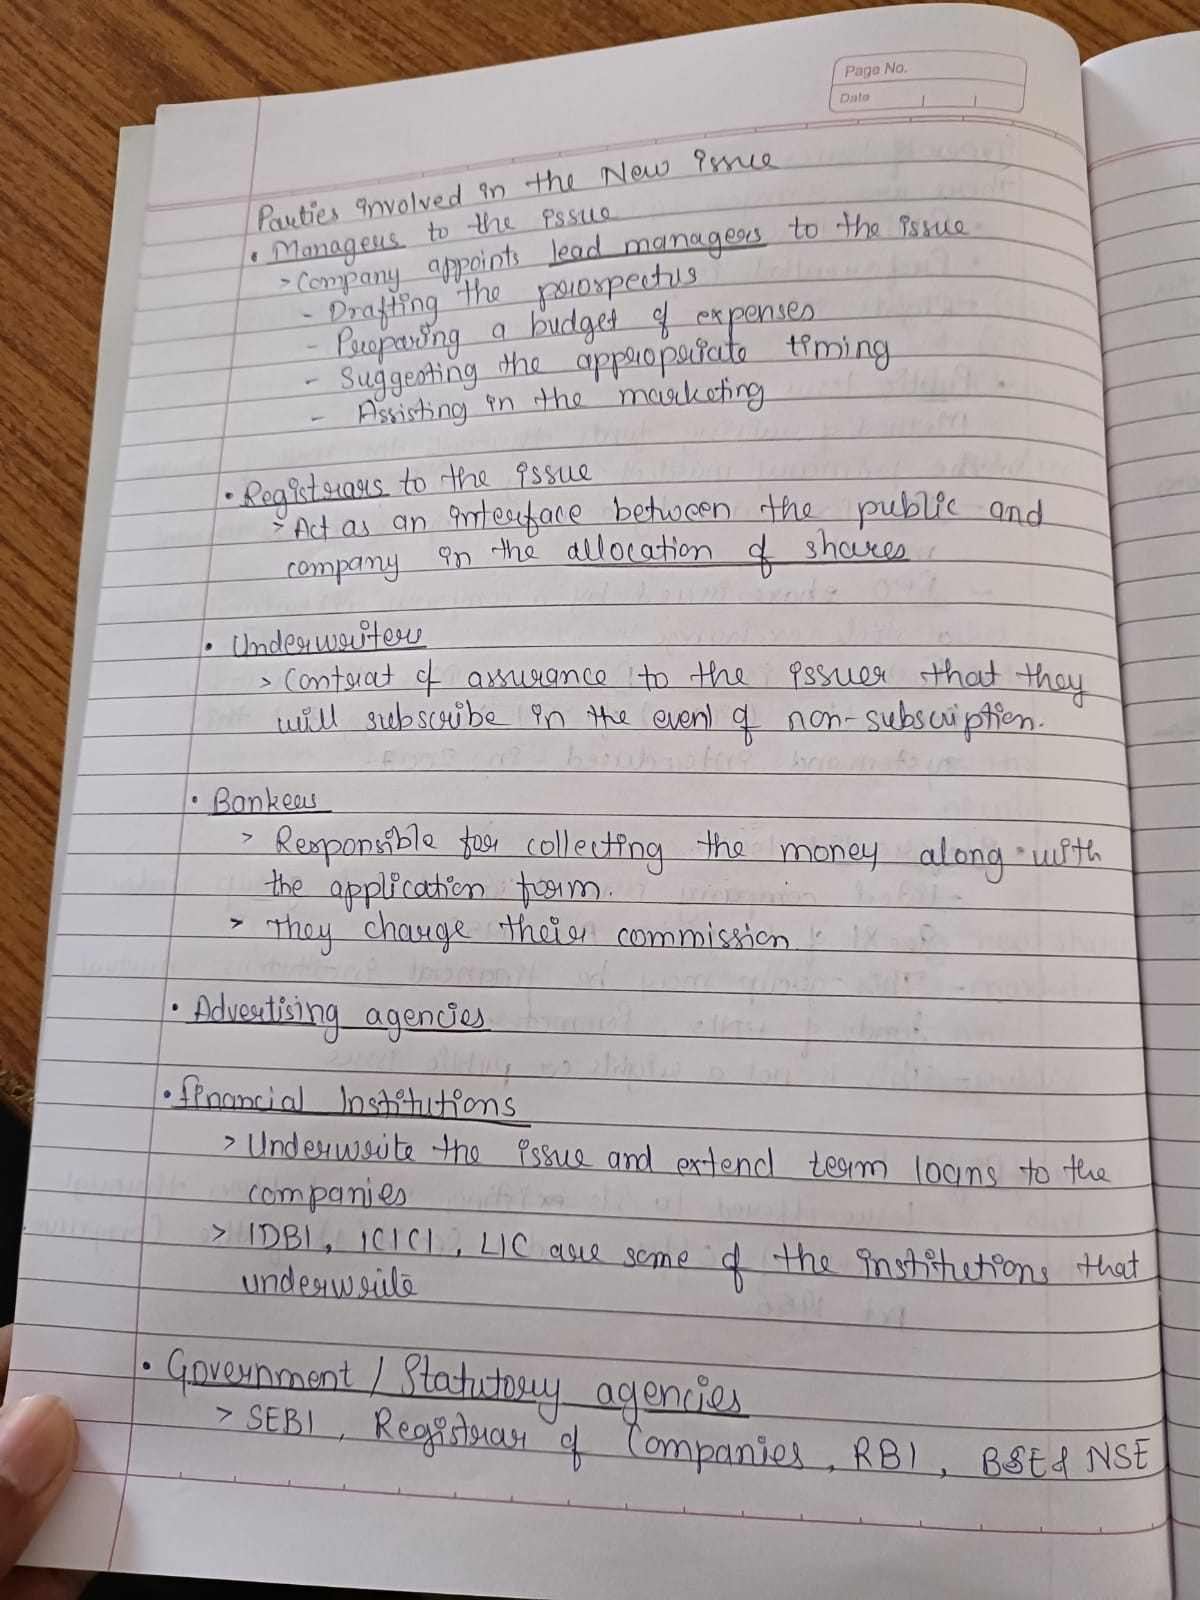 Page No.
Date
Parties involved in the New issue
• Managers to the issue
> Company appoints lead managers to the issue
- Drafting the prospectus
- Preparing a budget of expenses
- Suggesting the appropriate timing
- Assisting in the marketing
• Registrars to the issue
> Act as an interface between the public and
company in the allocation of shares
• Underwriters
> Contrat of assurance to the issuer that they
will subscribe in the event of non-subscription.
• Bankers
> Responsible for collecting the money along with
the application form.
> They charge their commission
• Advertising agencies
• financial Institutions
> Underwrite the issue and extend term loans to the
companies
> IDBI, ICICI, LIC are some of the institutions that
underwrite
• Government / Statutory agencies
> SEBI, Registrar of Companies, RBI, BSE & NSE